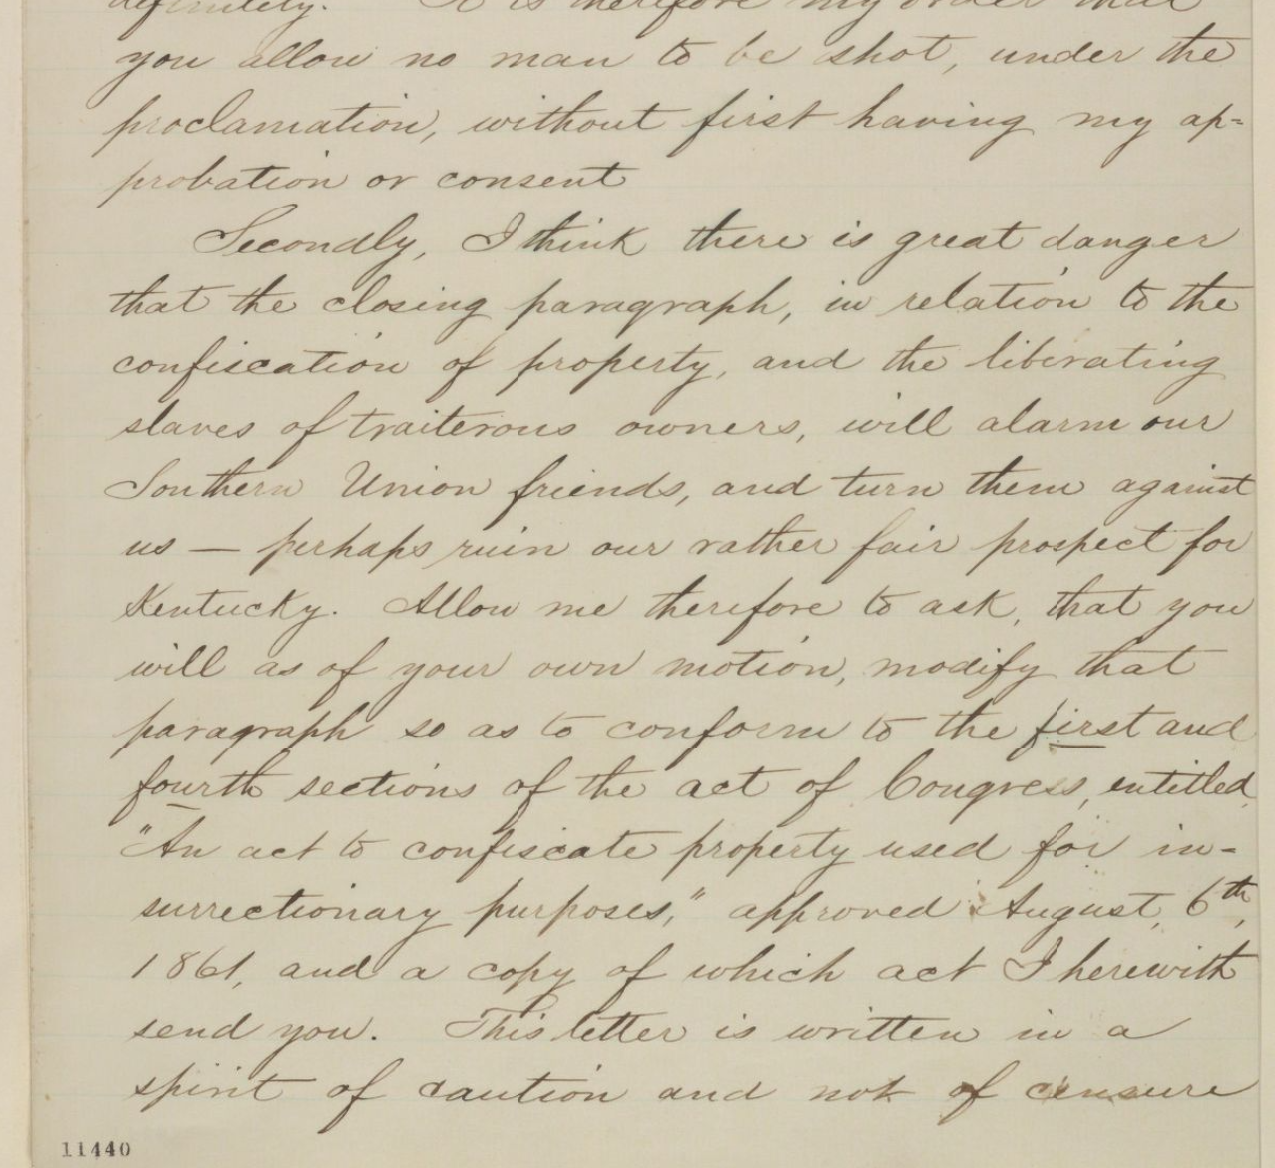 definitely. It is therefore my order that
you allow no man to be shot, under the
proclamation, without first having my ap=
probation or consent
Secondly, I think there is great danger
that the closing paragraph, in relation to the
confiscation of property, and the liberating
slaves of traiterous owners, will alarm our
Southern Union friends, and turn them against
us — perhaps ruin our rather fair prospect for
Kentucky. Allow me therefore to ask, that you
will as of your own motion, modify that
paragraph so as to conform to the first and
fourth sections of the act of Congress, entitled,
"An act to confiscate property used for in-
surrectionary purposes," approved August, 6th,
1861, and a copy of which act I herewith
send you. This letter is written in a
spirit of caution and not of censure
11440